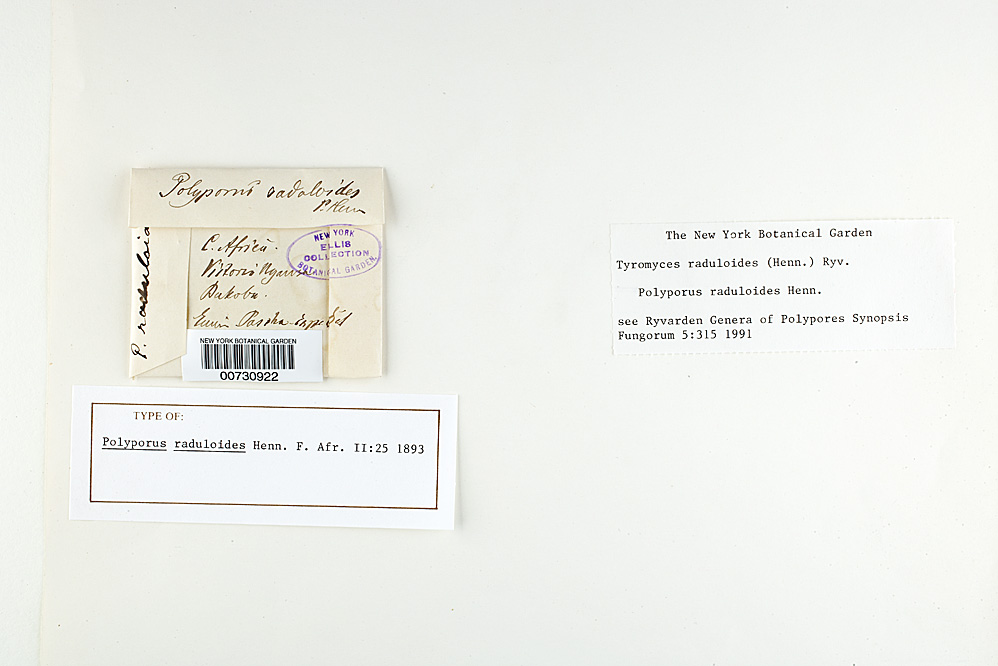 Polyporus raduloides
P. Henn
P. raduloid
C. Africa.
Victoria Nyansa
Bukoba.
Emin Pascha
NEW YORK
ELLIS
COLLECTION
BOTANICAL GARDEN.
NEW YORK BOTANICAL GARDEN
00730922
TYPE OF:
Polyporus raduloides Henn. F. Afr. II:25 1893
The New York Botanical Garden
Tyromyces raduloides (Henn.) Ryv.
Polyporus raduloides Henn.
see Ryvarden Genera of Polypores Synopsis
Fungorum 5:315 1991